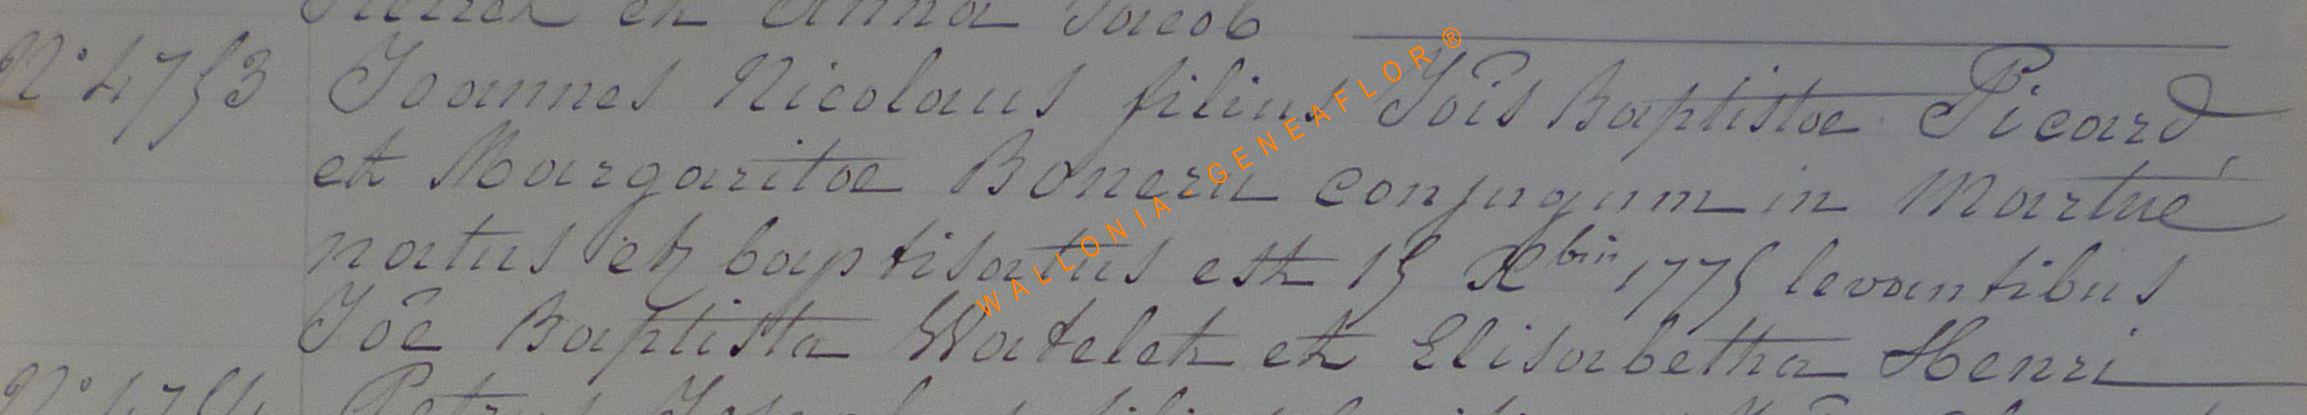 et Anna Jacob
N° 4753 Joannes Nicolaus filius Joîs Baptistae Picard
et Margaritae Boneru conjugum in Martué
natus et baptisatus est 15 Xbris 1775 levantibus
Joê Baptista Watelet et Elisabetha Henri
N° 4754 Petrus
WALLONIA - GENEAFLOR ®